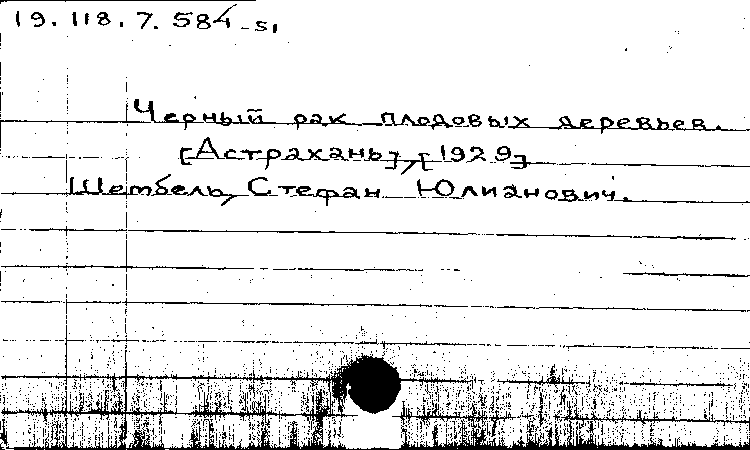 19.118.7.584-51
Черный рак плодовых деревьев.
[Астрахань], [1929]
Шембель, Стефан Юлианович.